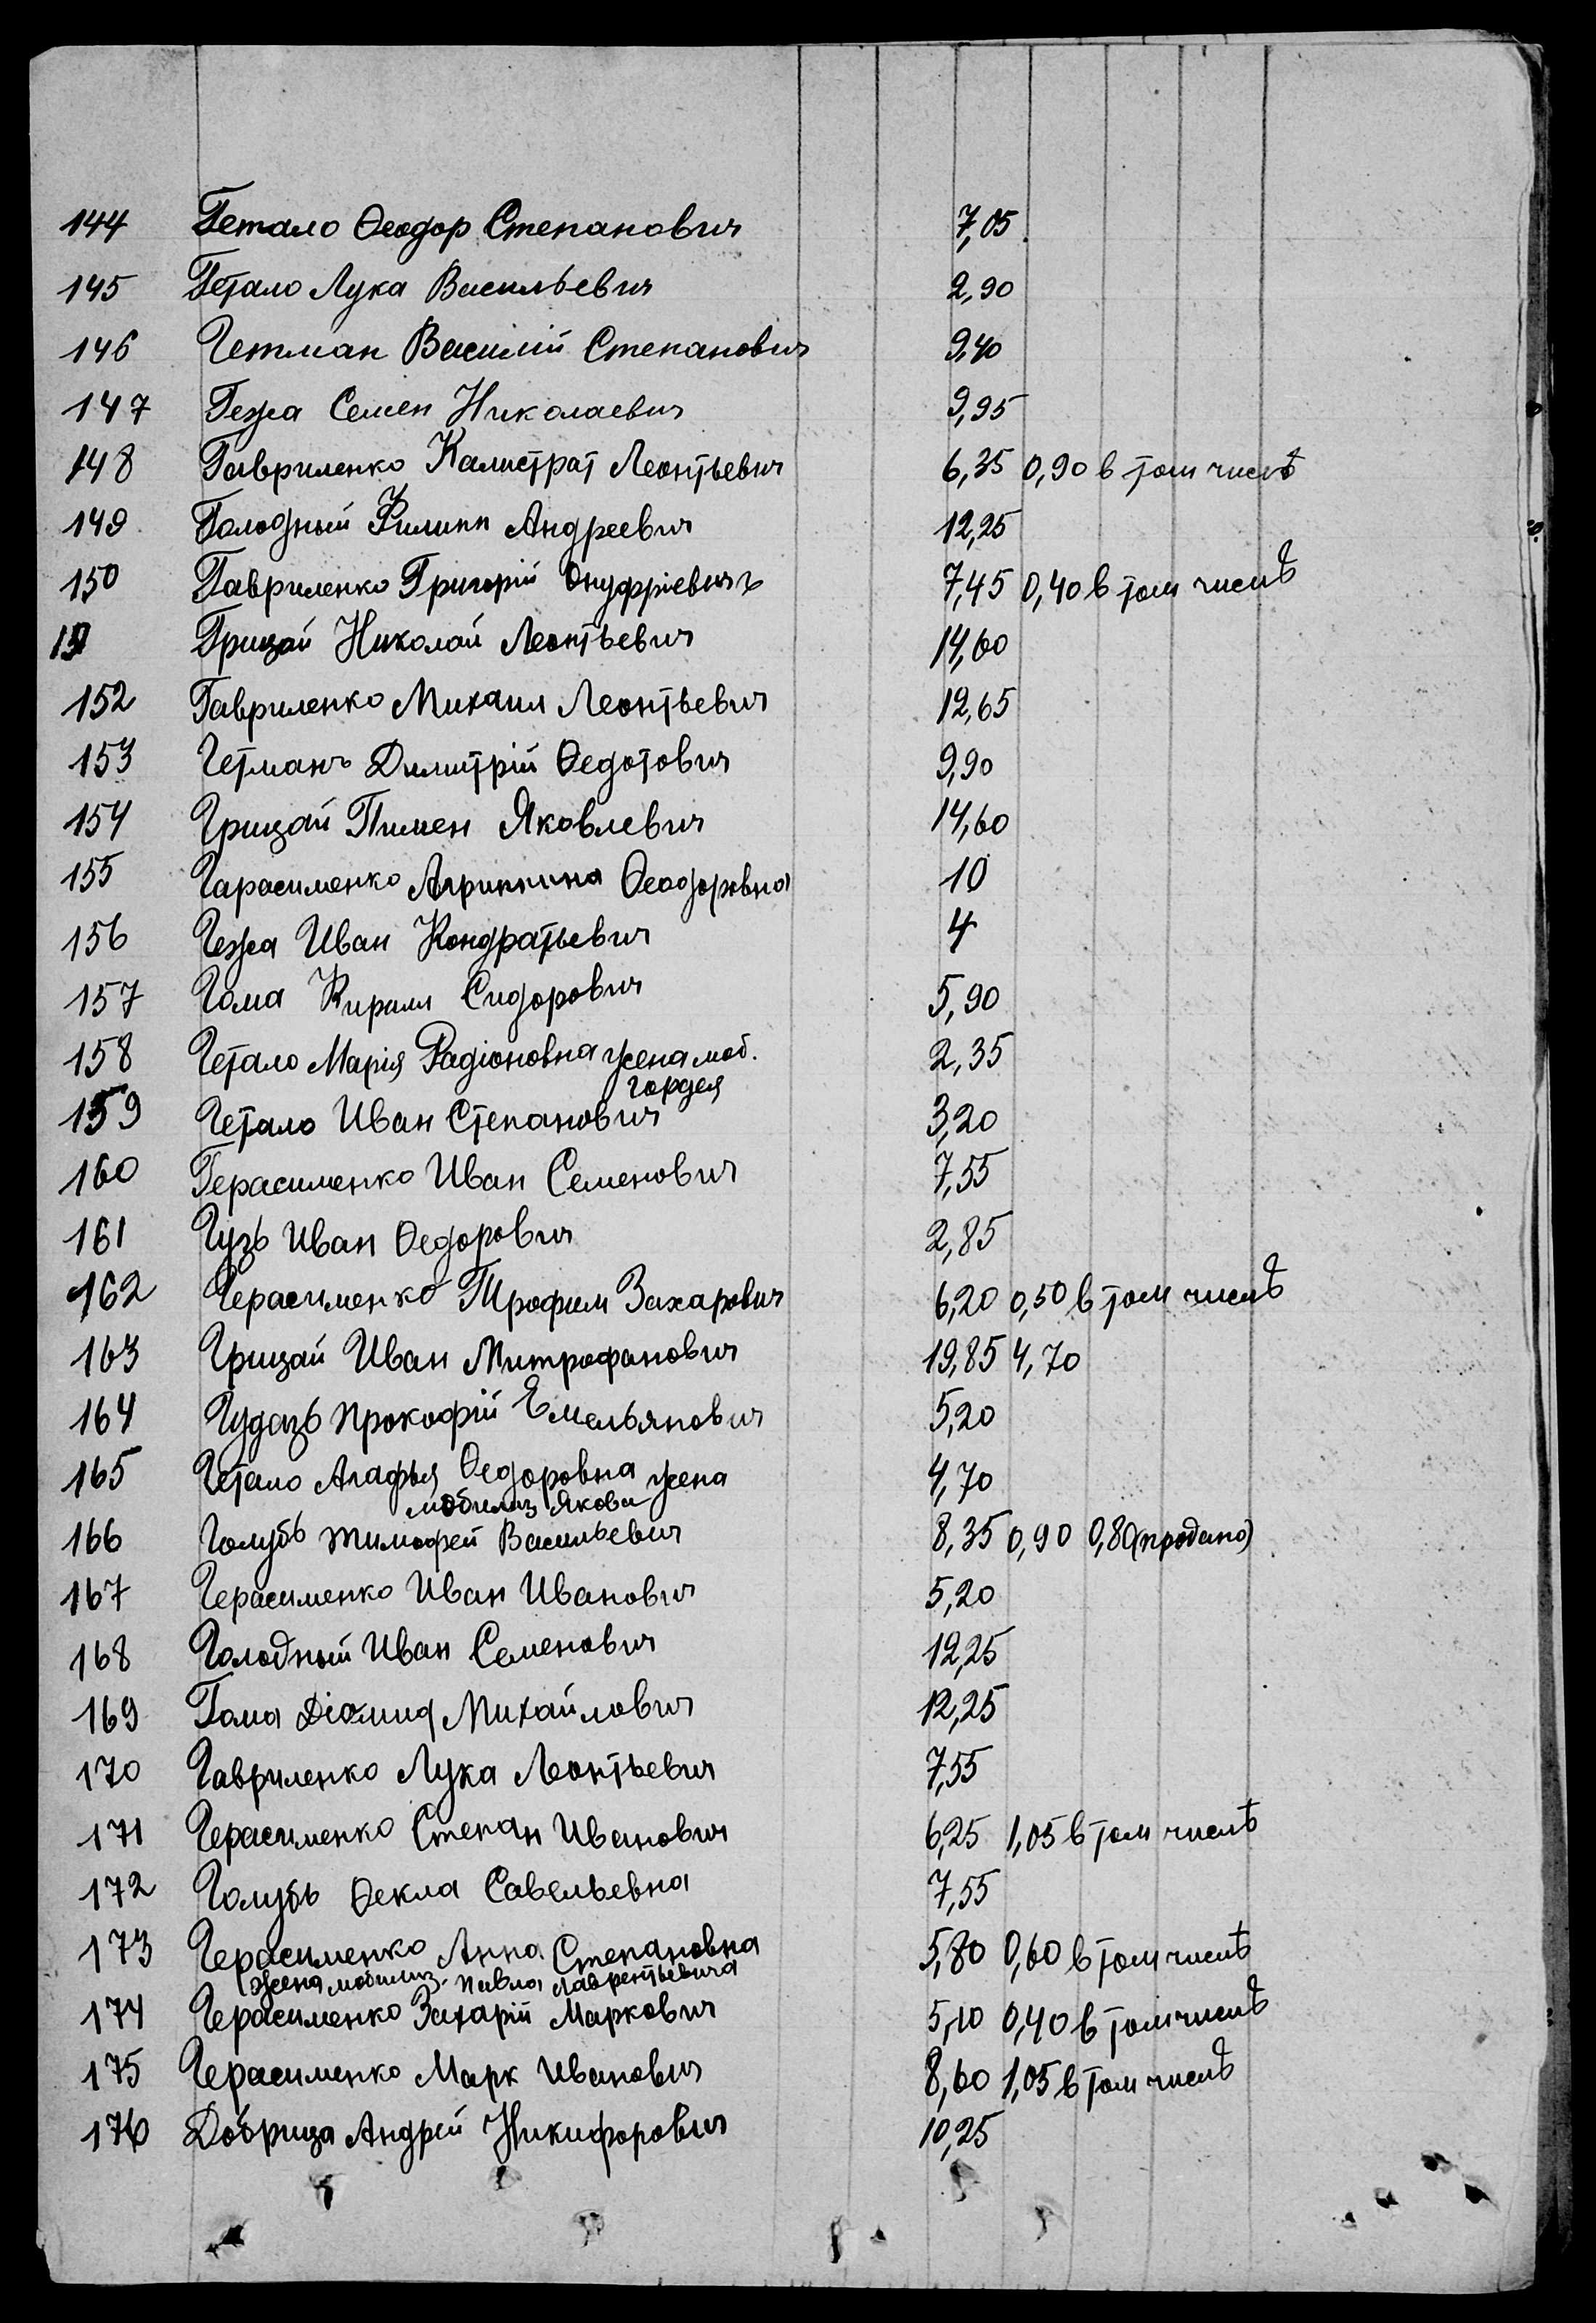 144 Гетало Ѳеодор Степанович 7,05
145 Гетало Лука Васильевич 2,90
146 Гетман Василій Степанович 9,40
147 Гежа Семен Николаевич 9,95
148 Гавриленко Калистрат Леонтьевич 6,35 0,90 в том числѣ
149 Голодный Филипп Андреевич 12,25
150 Гавриленко Григорій Онуфріевичъ 7,45 0,40 в том числѣ
151 Грицай Николай Леонтьевич 14,60
152 Гавриленко Михаил Леонтьевич 12,65
153 Гетманъ Димитрій Ѳедотович 9,90
154 Грицай Пимен Яковлевич 14,60
155 Гарасименко Агриппина Ѳеодоровна 10
156 Гежа Иван Кондратьевич 4
157 Гома Кирилл Сидорович 5,90
158 Гетало Марія Радіоновна жена моб. 2,35
гордея
159 Гетало Иван Степанович 3,20
160 Герасименко Иван Семенович 7,55
161 Гузь Иван Ѳедорович 2,85
162 Герасименко Трофим Захарович 6,20 0,50 в том числѣ
163 Грицай Иван Митрофанович 19,85 4,70
164 Гудзь Прокофій Емельянович 5,20
165 Гетало Агафья Ѳедоровна жена 4,70
мобилиз Якова
166 Голубь Тимофей Васильевич 8,35 0,90 0,80 (продано)
167 Герасименко Иван Иванович 5,20
168 Голодный Иван Семенович 12,25
169 Гома Діомид Михайлович 12,25
170 Гавриленко Лука Леонтьевич 7,55
171 Герасименко Степан Иванович 6,25 1,05 в том числѣ
172 Голубь Ѳекла Савельевна 7,55
173 Герасименко Анна Степановна 5,80 0,60 в том числѣ
(жена мобилиз. Павла Лаврентьевича
174 Герасименко Захарій Маркович 5,10 0,40 в том числѣ
175 Герасименко Марк Иванович 8,60 1,05 в том числѣ
176 Добрица Андрей Никифорович 10,25